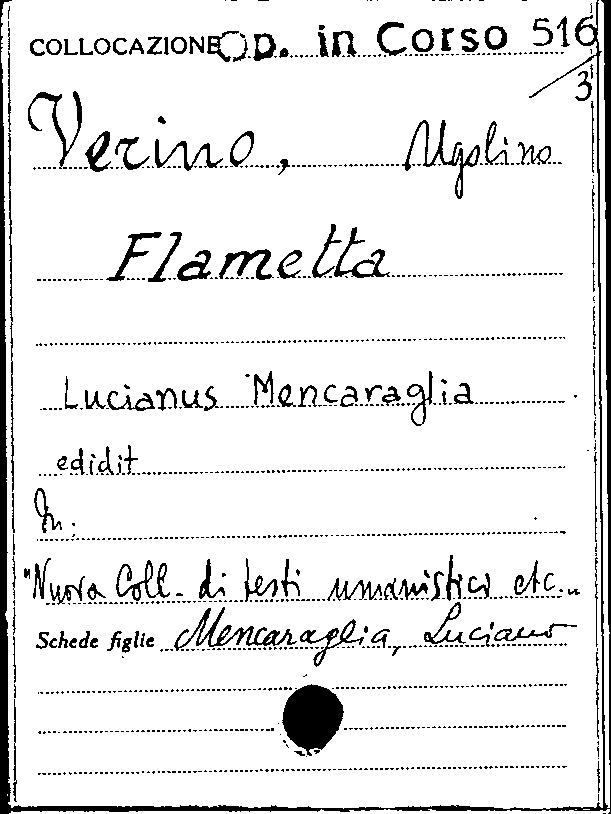 COLLOCAZIONE Op. in Corso 516/3
Verino, Ugolino
Flametta
Lucianus Mencaraglia
edidit
In:
"Nuova Coll. di testi umanistici etc."
Schede figlie Mencaraglia, Luciano